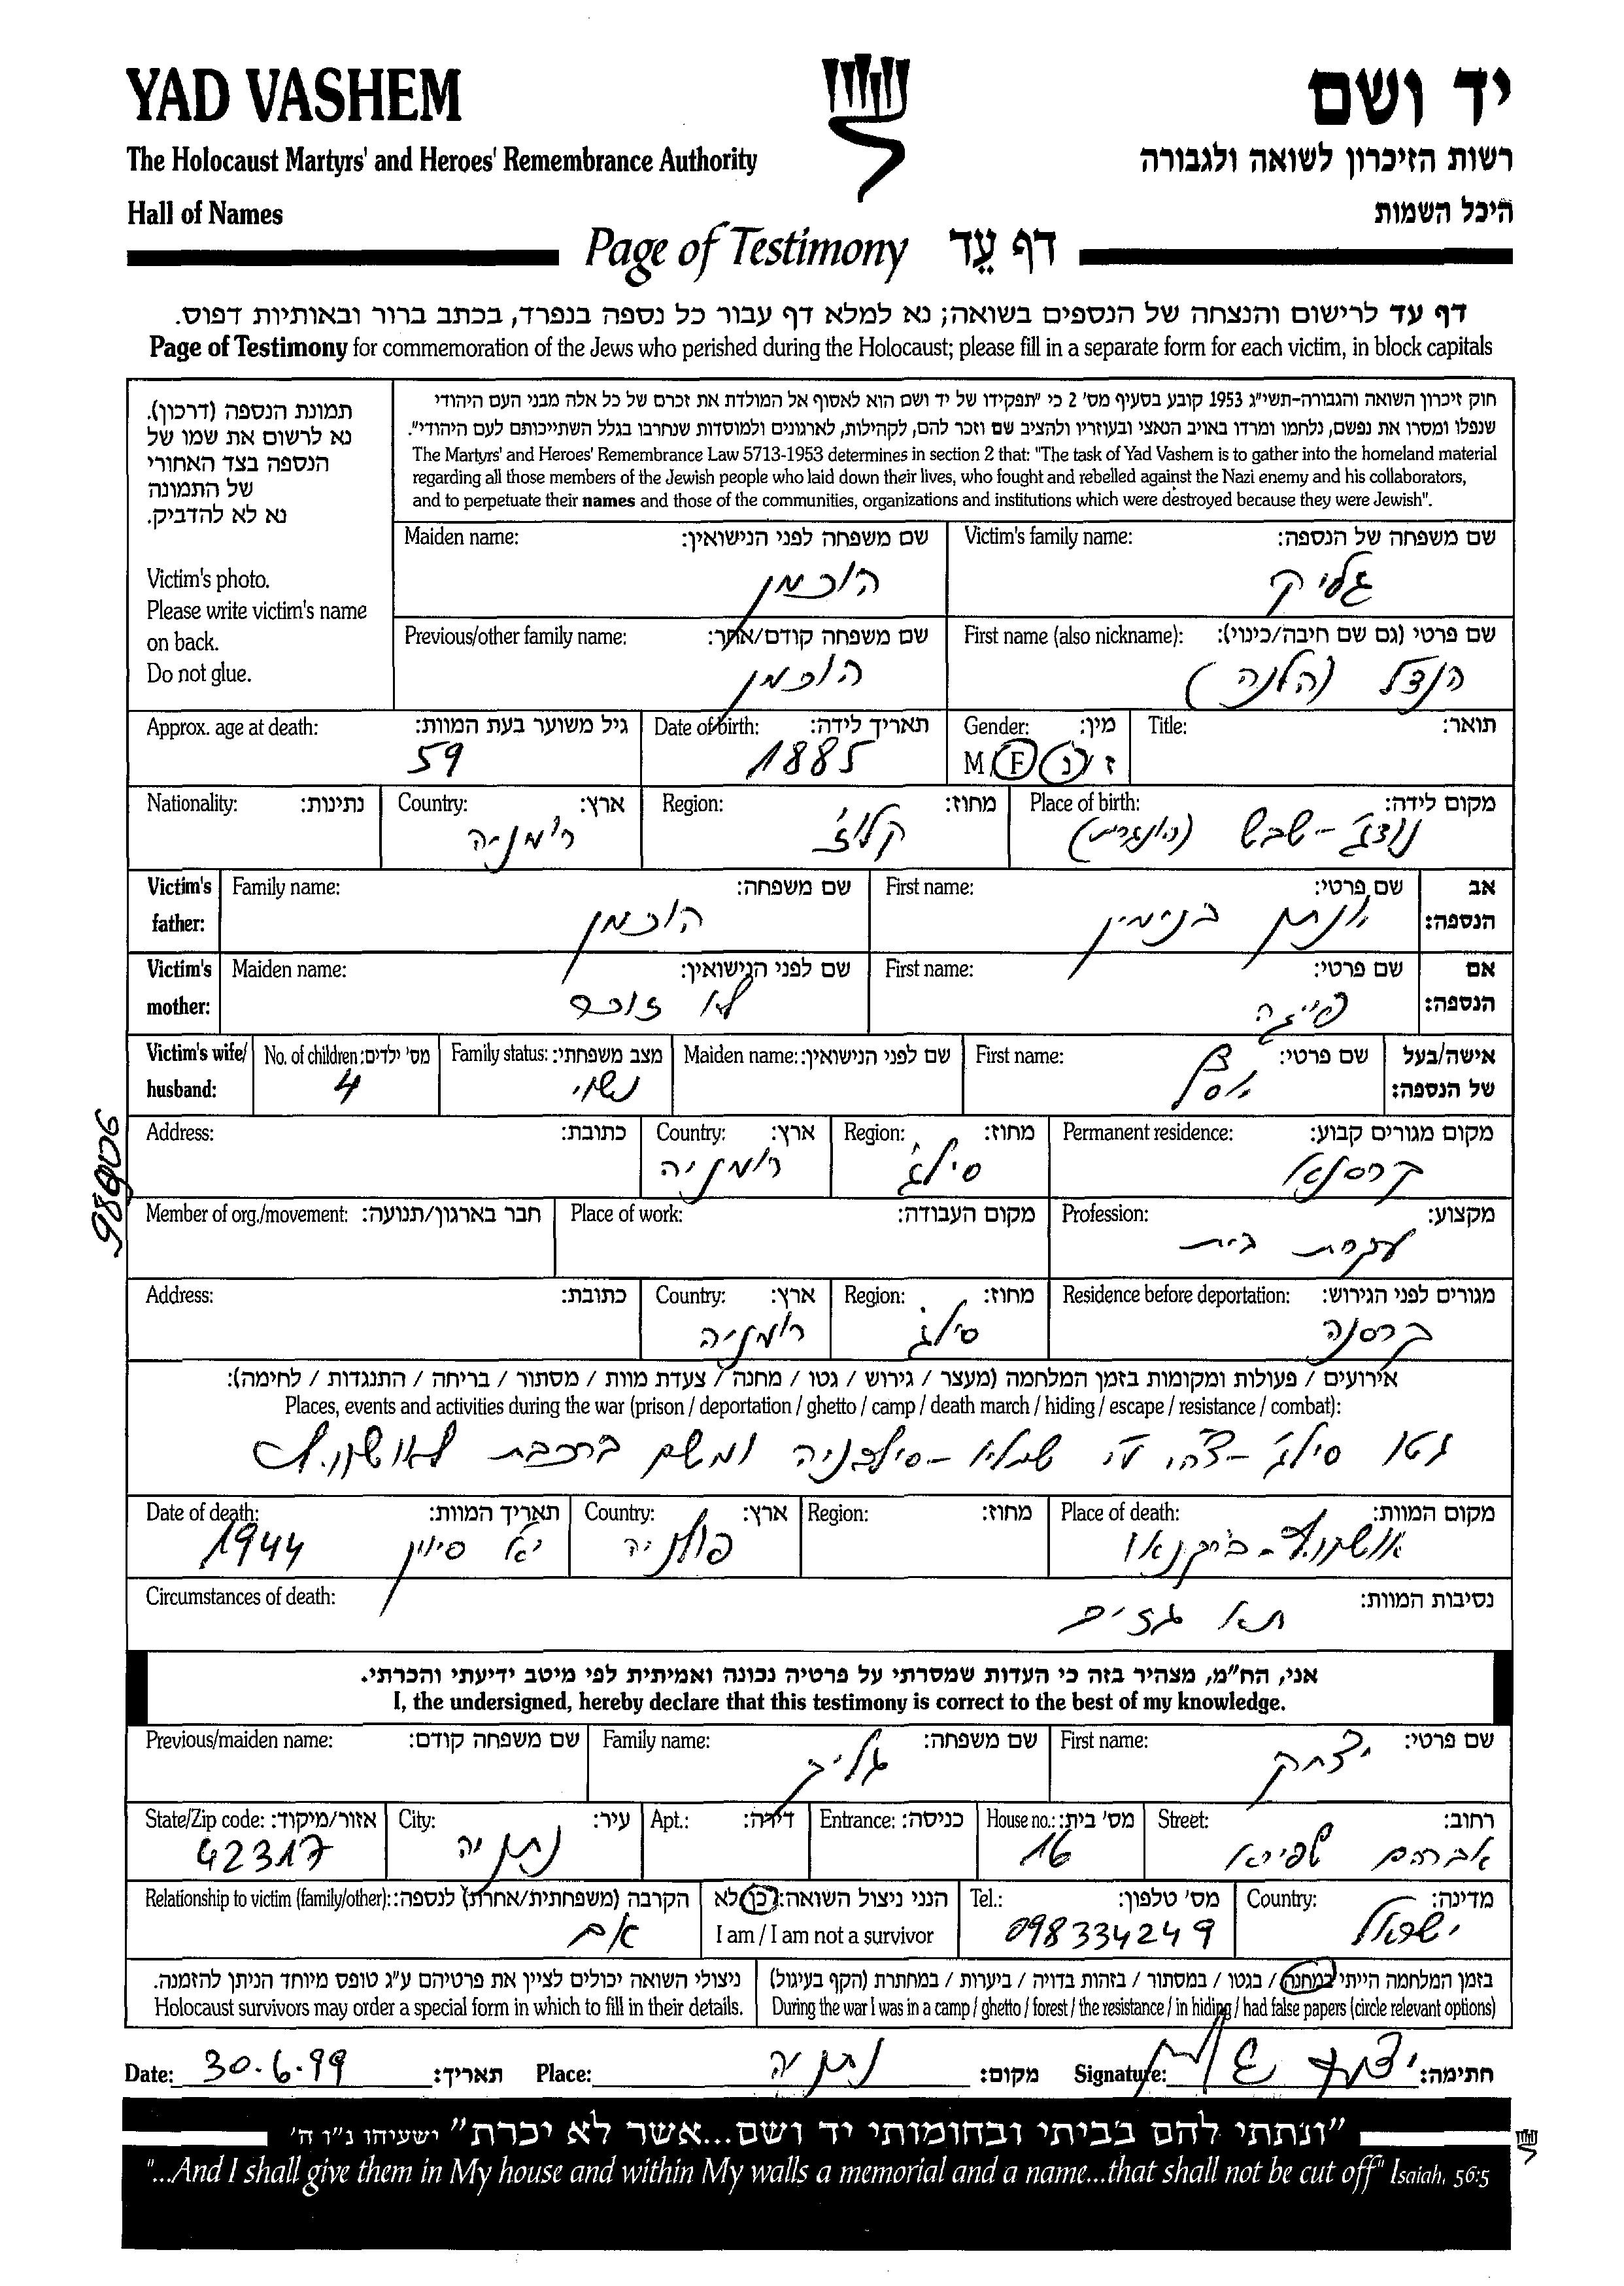 YAD VASHEM
יד ושם
The Holocaust Martyrs' and Heroes' Remembrance Authority
רשות הזיכרון לשואה ולגבורה
Hall of Names
היכל השמות
Page of Testimony דף עֵד
דף עד לרישום והנצחה של הנספים בשואה; נא למלא דף עבור כל נספה בנפרד, בכתב ברור ובאותיות דפוס.
Page of Testimony for commemoration of the Jews who perished during the Holocaust; please fill in a separate form for each victim, in block capitals
תמונת הנספה (דרכון).
נא לרשום את שמו של
הנספה בצד האחורי
של התמונה
נא לא להדביק.
Victim's photo.
Please write victim's name
on back.
Do not glue.
חוק זיכרון השואה והגבורה-תשי"ג 1953 קובע בסעיף מס' 2 כי "תפקידו של יד ושם הוא לאסוף אל המולדת את זכרם של כל אלה מבני העם היהודי
שנפלו ומסרו את נפשם, נלחמו ומרדו באויב הנאצי ובעוזריו ולהציב שם וזכר להם, לקהילות, לארגונים ולמוסדות שנחרבו בגלל השתייכותם לעם היהודי".
The Martyrs' and Heroes' Remembrance Law 5713-1953 determines in section 2 that: "The task of Yad Vashem is to gather into the homeland material
regarding all those members of the Jewish people who laid down their lives, who fought and rebelled against the Nazi enemy and his collaborators,
and to perpetuate their names and those of the communities, organizations and institutions which were destroyed because they were Jewish".
Victim's family name: שם משפחה של הנספה: Maiden name: שם משפחה לפני הנישואין:
גליק הוכמן
First name (also nickname): שם פרטי (גם שם חיבה/כינוי): Previous/other family name: שם משפחה קודם/אחר:
הנצל (הלנה) הוכמן
Title: תואר: Gender: מין: Date of birth: תאריך לידה: Approx. age at death: גיל משוער בעת המוות:
M F ז / נ 1885 59
Place of birth: מקום לידה: Region: מחוז: Country: ארץ: Nationality: נתינות:
קלוז' רומניה
Victim's father: אב הנספה: First name: שם פרטי: Family name: שם משפחה:
בנימין הוכמן
Victim's mother: אם הנספה: First name: שם פרטי: Maiden name: שם לפני הנישואין:
פייגה לא זוכר
Victim's wife/husband: אישה/בעל של הנספה: First name: שם פרטי: Maiden name: שם לפני הנישואין: Family status: מצב משפחתי: No. of children: מס' ילדים:
נשוי 4
Permanent residence: מקום מגורים קבוע: Region: מחוז: Country: ארץ: Address: כתובת:
סילג' רומניה
Profession: מקצוע: Place of work: מקום העבודה: Member of org./movement: חבר בארגון/תנועה:
עקרת בית
Residence before deportation: מגורים לפני הגירוש: Region: מחוז: Country: ארץ: Address: כתובת:
קרסנה סילג' רומניה
אירועים / פעולות ומקומות בזמן המלחמה (מעצר / גירוש / גטו / מחנה / צעדת מוות / מסתור / בריחה / התנגדות / לחימה):
Places, events and activities during the war (prison / deportation / ghetto / camp / death march / hiding / escape / resistance / combat):
גטו סילג' - ומשם ברכבת לאושויץ
Place of death: מקום המוות: Region: מחוז: Country: ארץ: Date of death: תאריך המוות:
אושויץ - בירקנאו פולניה סיוון 1944
Circumstances of death: נסיבות המוות:
תא גזים
אני, הח"מ, מצהיר בזה כי העדות שמסרתי על פרטיה נכונה ואמיתית לפי מיטב ידיעתי והכרתי.
I, the undersigned, hereby declare that this testimony is correct to the best of my knowledge.
First name: שם פרטי: Family name: שם משפחה: Previous/maiden name: שם משפחה קודם:
יצחק גליק
Street: רחוב: House no.: מס' בית: Entrance: כניסה: Apt.: דירה: City: עיר: State/Zip code: אזור/מיקוד:
אברהם שפירא 16 נתניה 42317
Country: מדינה: Tel.: מס' טלפון: הנני ניצול השואה: כן לא Relationship to victim (family/other): הקרבה (משפחתית/אחרת) לנספה:
ישראל 098334249 I am / I am not a survivor אם
בזמן המלחמה הייתי במחנה / בגטו / במסתור / בזהות בדויה / ביערות / במחתרת (הקף בעיגול)
During the war I was in a camp / ghetto / forest / the resistance / in hiding / had false papers (circle relevant options)
ניצולי השואה יכולים לציין את פרטיהם ע"ג טופס מיוחד הניתן להזמנה.
Holocaust survivors may order a special form in which to fill in their details.
Date: 30.6.99 תאריך: Place: נתניה מקום: Signature: יצחק גליק חתימה:
"ונתתי להם בביתי ובחומותי יד ושם...אשר לא יכרת" ישעיהו נ"ו ה'
"...And I shall give them in My house and within My walls a memorial and a name...that shall not be cut off" Isaiah, 56:5